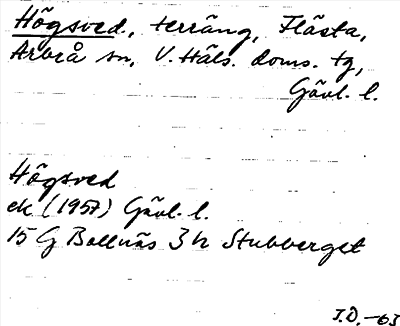 Högsved, terräng, Flästa,
Arbrå sn, V. Häls. doms. tg,
Gävl. l.
Högsved
ek (1957) Gävl. l.
15 G Bollnäs 3 h Stubberget
J.D.-63